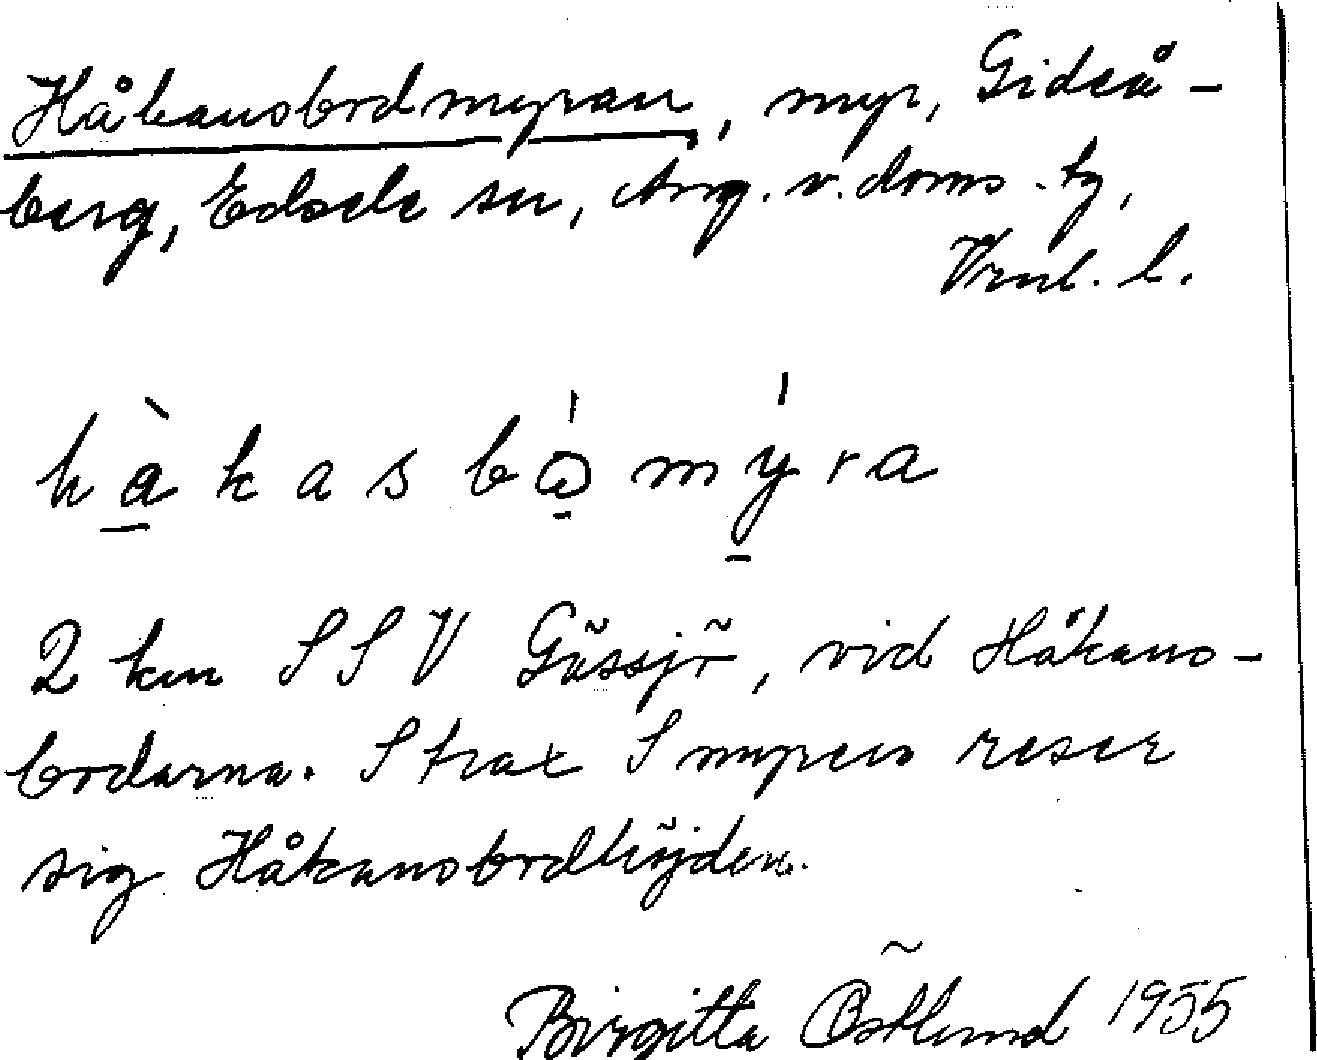 Håkansbodmyran, myr, Gideå-
berg, Edsele sn, Ång. v. doms.-tg,
Vrnl. l.
håkasbåmýra
2 km SSV Gåssjö, vid Håkans-
bodarna. Strax S myren reser
sig Håkansbodhöjden.
Birgitta Östlund 1955